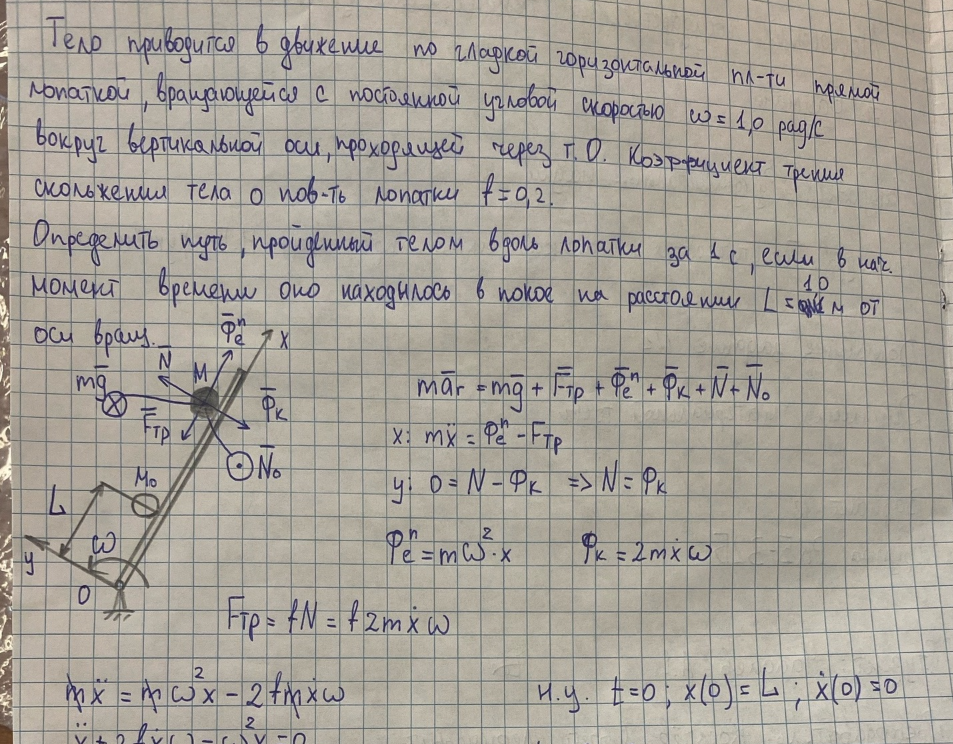 Тело приводится в движение по гладкой горизонтальной пл-ти прямой
лопаткой, вращающейся с постоянной угловой скоростью ω = 1,0 рад/с
вокруг вертикальной оси, проходящей через т. О. Коэффициент трения
скольжения тела о пов-ть лопатки f = 0,2.
Определить путь, пройденный телом вдоль лопатки за 1 с, если в нач.
момент времени оно находилось в покое на расстоянии L = 10 м от
оси вращ.
Φ̅ₑⁿ
x
N̅
M
mg̅
Φ̅к
F̅тр
N̅₀
M₀
L
ω
y
O
ma̅r = mg̅ + F̅тр + Φ̅ₑⁿ + Φ̅к + N̅ + N̅₀
x: mẍ = Φₑⁿ - Fтр
y: 0 = N - Φк => N = Φк
Φₑⁿ = mω²·x Φк = 2mẋω
Fтр = fN = f2mẋω
mẍ = mω²x - 2fmẋω н.у. t=0; x(0) = L; ẋ(0) = 0
ẍ + 2fẋω - ω²x = 0